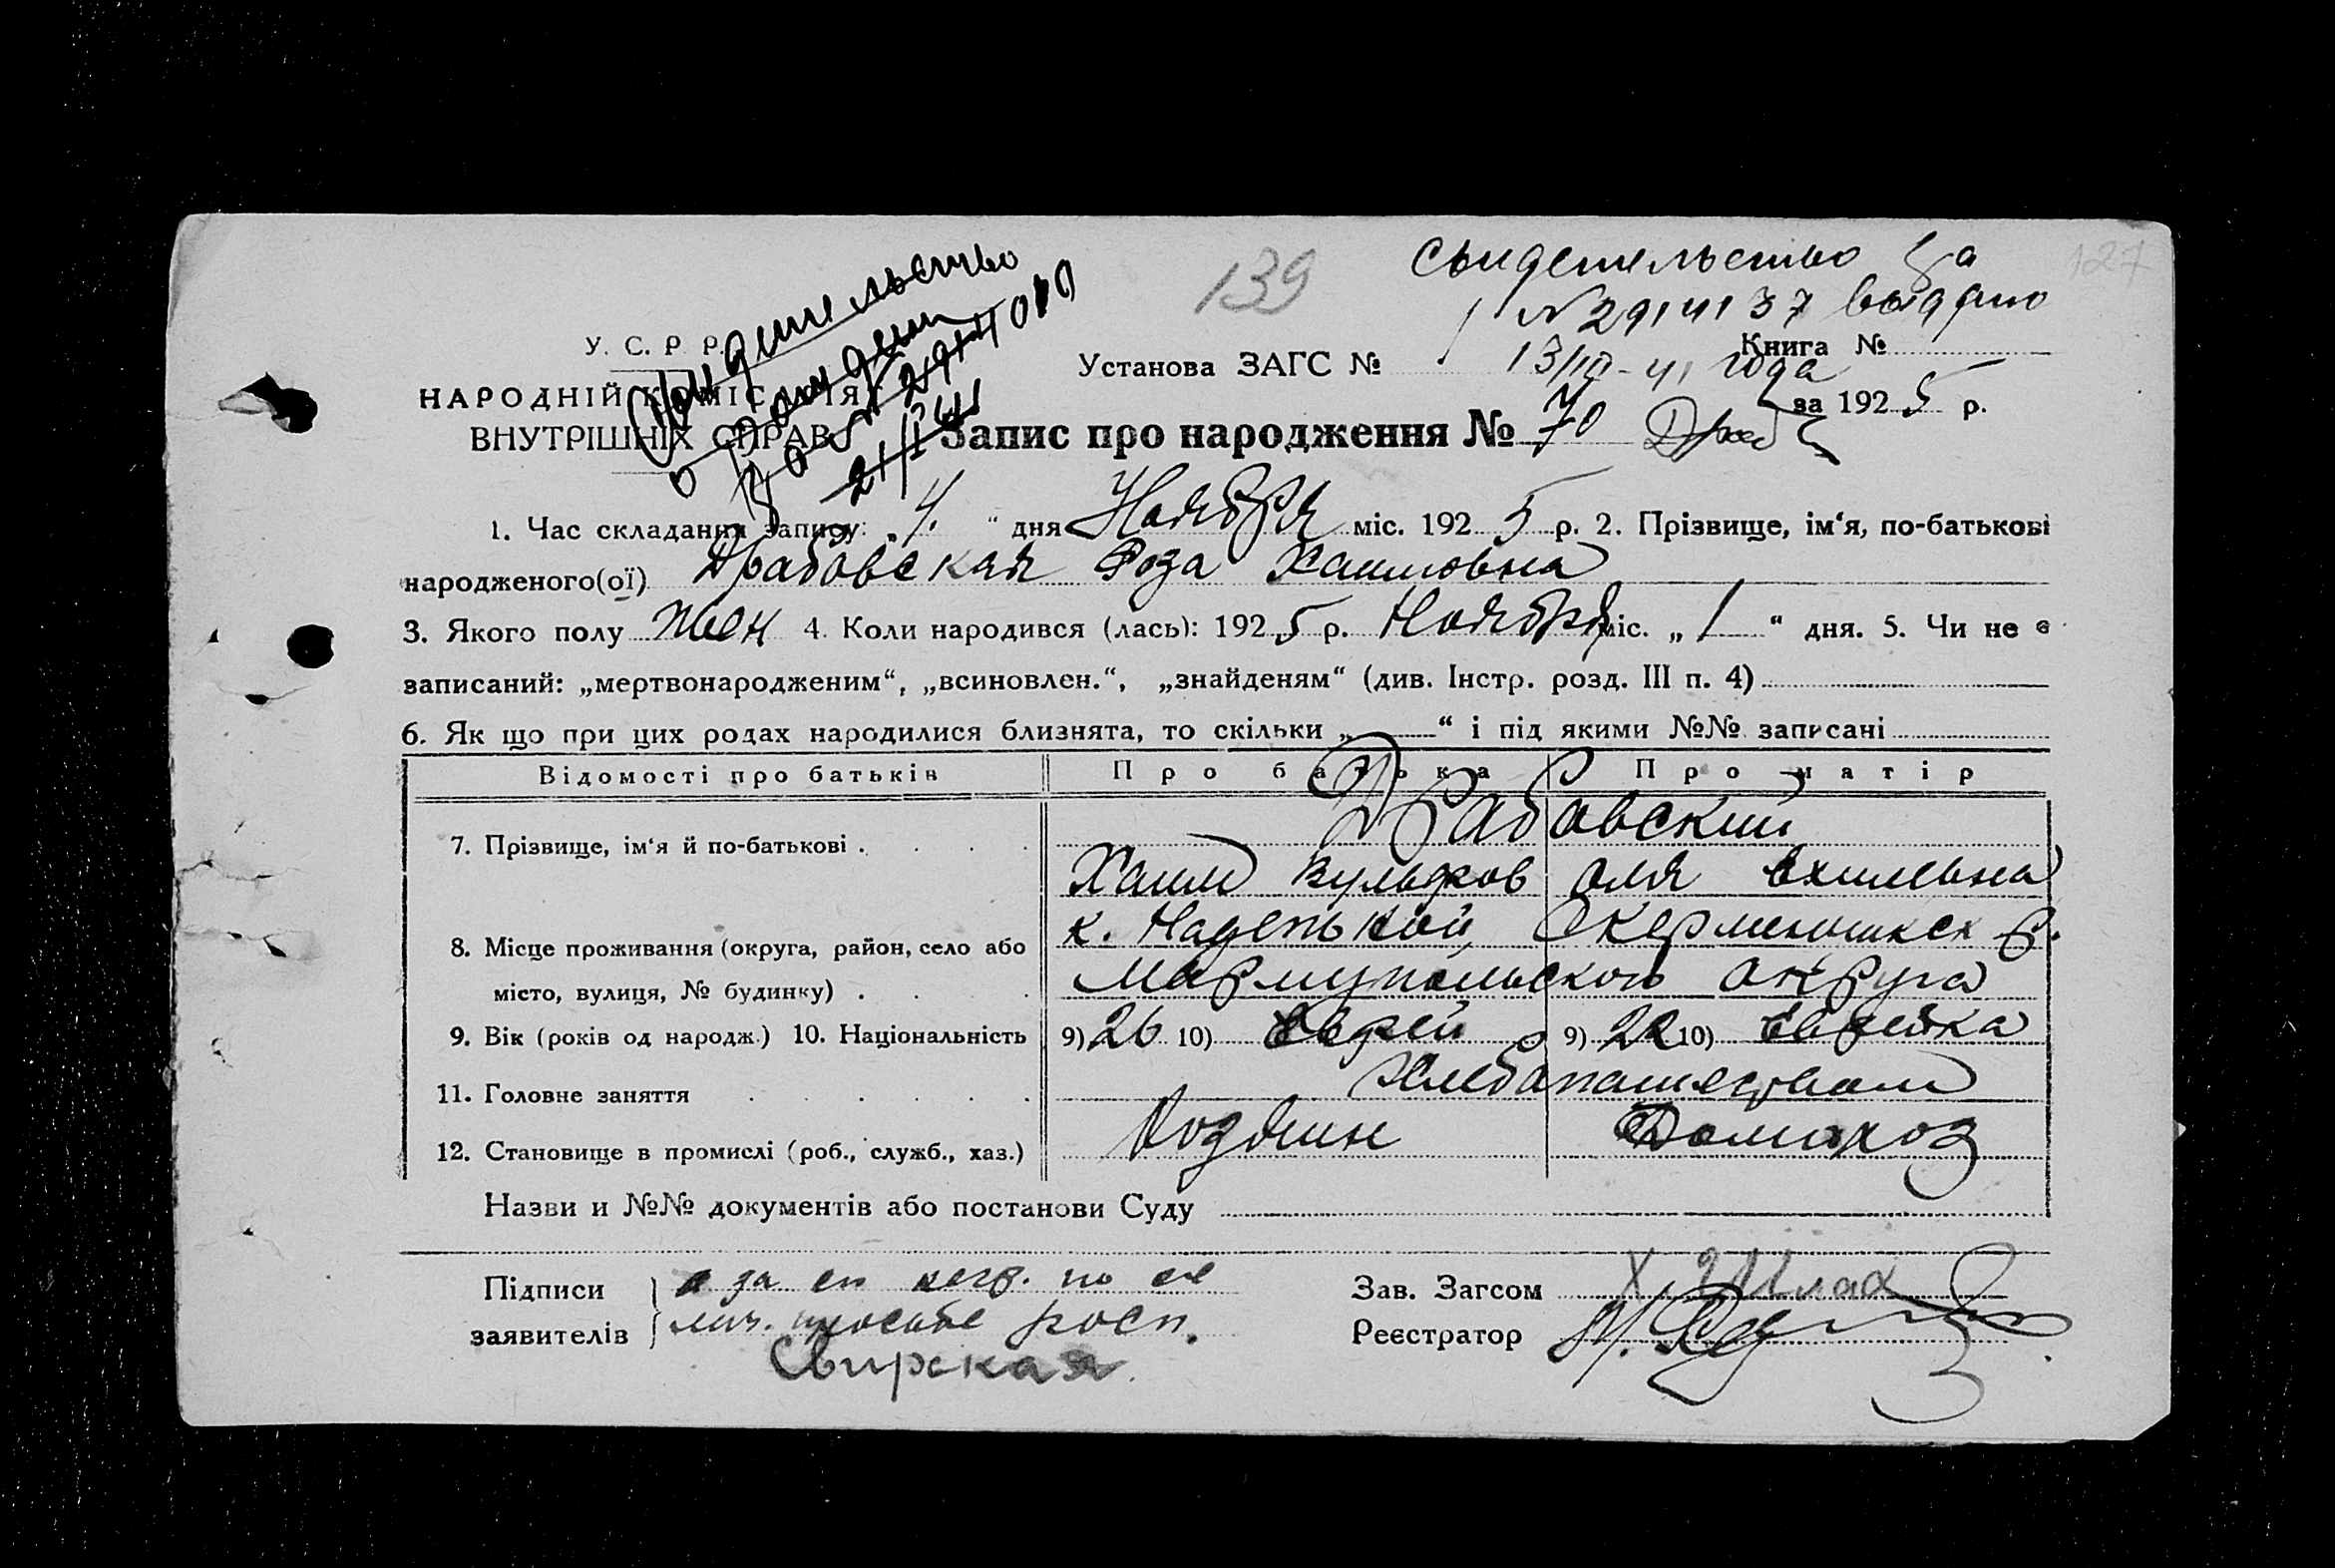 139
127
Свидетельство за
N 2914137 выдано
13/III-41 года
Свидетельство
о рожден
за N 2914040
21/I 41
У. С. Р. Р.
НАРОДНІЙ КОМІСАРІЯТ
ВНУТРІШНІХ СПРАВ
Установа ЗАГС №
Книга №
за 1925 р.
Запис про народження № 70
1. Час складання запису: „4.“ дня Ноября міс. 1925 р. 2. Прізвище, ім‘я, по-батькові
народженого(ої) Драбовская Роза Хаимовна
3. Якого полу жен 4. Коли народився (лась): 1925 р. Ноября міс. „1“ дня. 5. Чи не є
записаний: „мертвонародженим“, „всиновлен.“, „знайденям“ (див. Інстр. розд. III п. 4)
6. Як що при цих родах народилися близнята, то скільки „—“ і під якими №№ записані
Відомості про батьків Про батька Про матір
7. Прізвище, ім‘я й по-батькові Драбовский
Хаим Вульфов Оля Ехилевна
8. Місце проживання (округа, район, село або
місто, вулиця, № будинку)
к. Надежной, Р.
Мариупольского округа
9. Вік (років од народж.) 10. Національність 9) 26 10) Еврей 9) 22 10) Еврейка
11. Головне заняття Хлебопашеством
12. Становище в промислі (роб., служб., хаз.) Хозяин Домохоз
Назви и №№ документів або постанови Суду
Підписи
заявителів
а за ея негр. по ее
лич. просьбе росп.
Свирская.
Зав. Загсом
Реєстратор